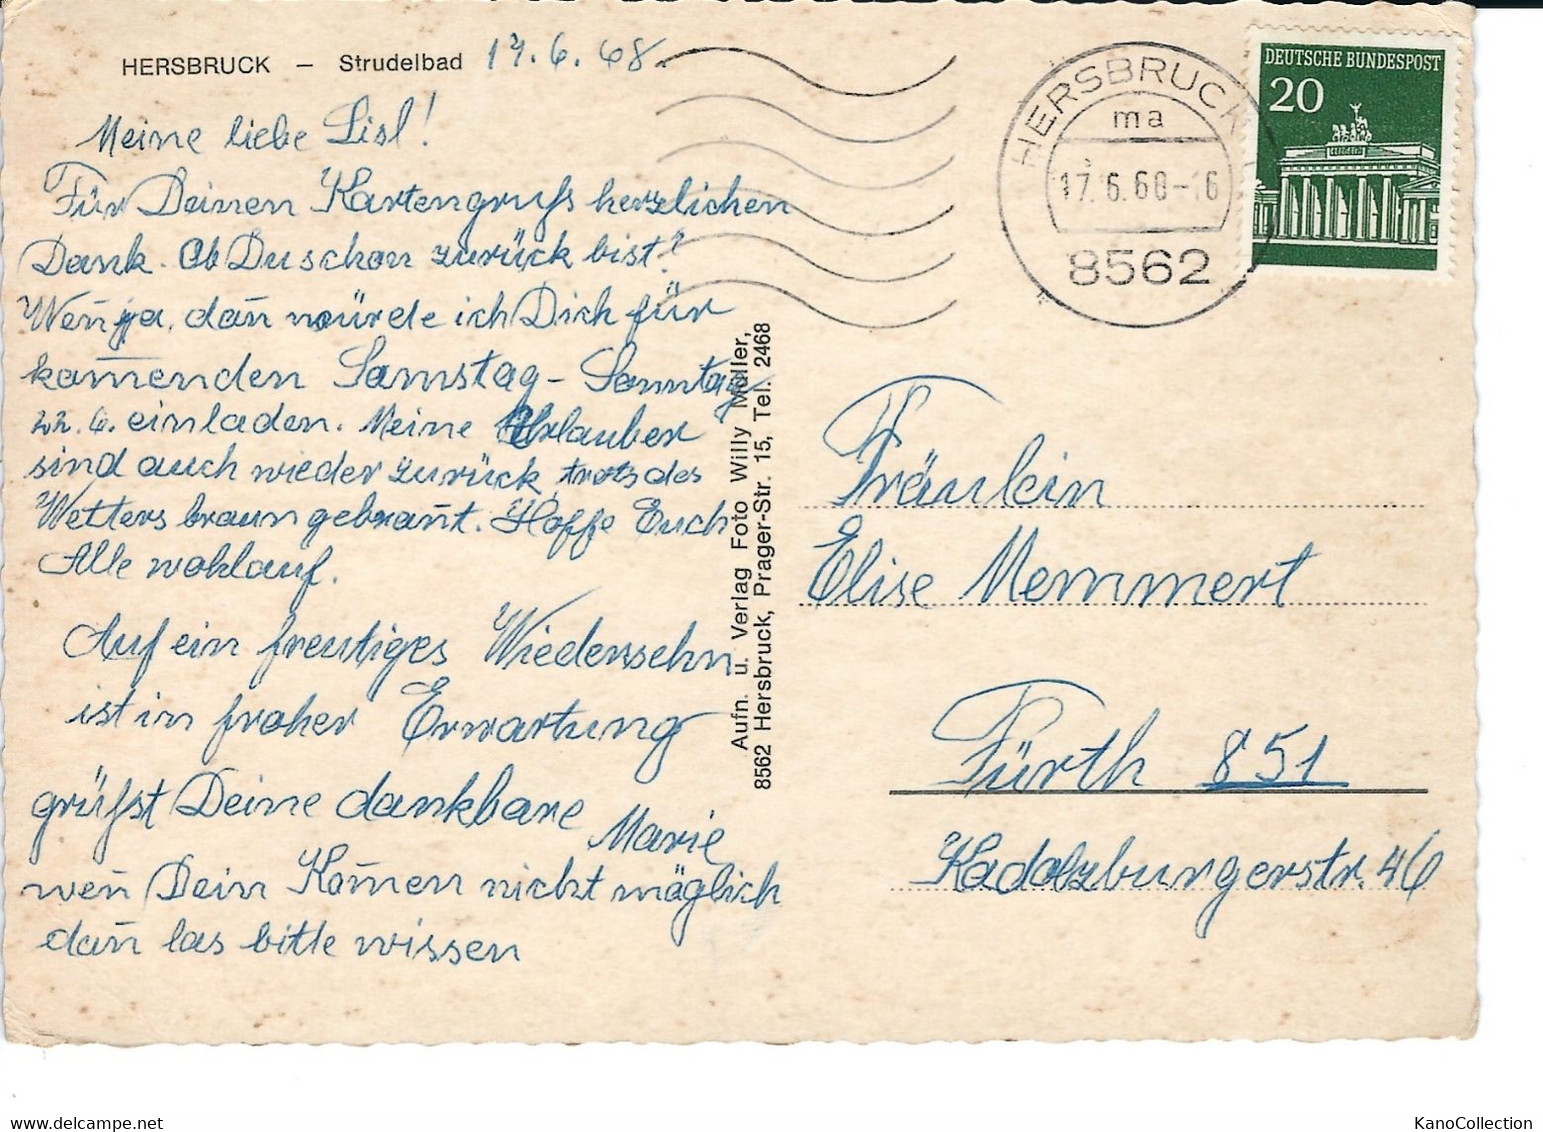 HERSBRUCK – Strudelbad 17. 6. 68.
Meine liebe Lisl!
Für Deinen Kartengruß herzlichen
Dank. Ob Du schon zurück bist?
Wen̄ ja, dan̄ würde ich Dich für
kom̄enden Samstag – Sonntag
22. 6. einladen. Meine Urlauber
sind auch wieder zurück, trotz des
Wetters braun gebran̄t. Hoffe Euch
Alle wohlauf.
Auf ein freutiges Wiedersehn
ist in froher Erwartung
grüßt Deine dankbare
Marie
wen̄ Dein Kom̄en nicht möglich
dan̄ las bitte wissen
Aufn. u. Verlag Foto Willy Müller,
8562 Hersbruck, Prager-Str. 15, Tel. 2468
HERSBRUCK 1
ma
17. 6. 68-16
8562
DEUTSCHE BUNDESPOST
20
Fräulein
Elise Memmert
Fürth 851
Kadolzburgerstr. 46
KanoCollection